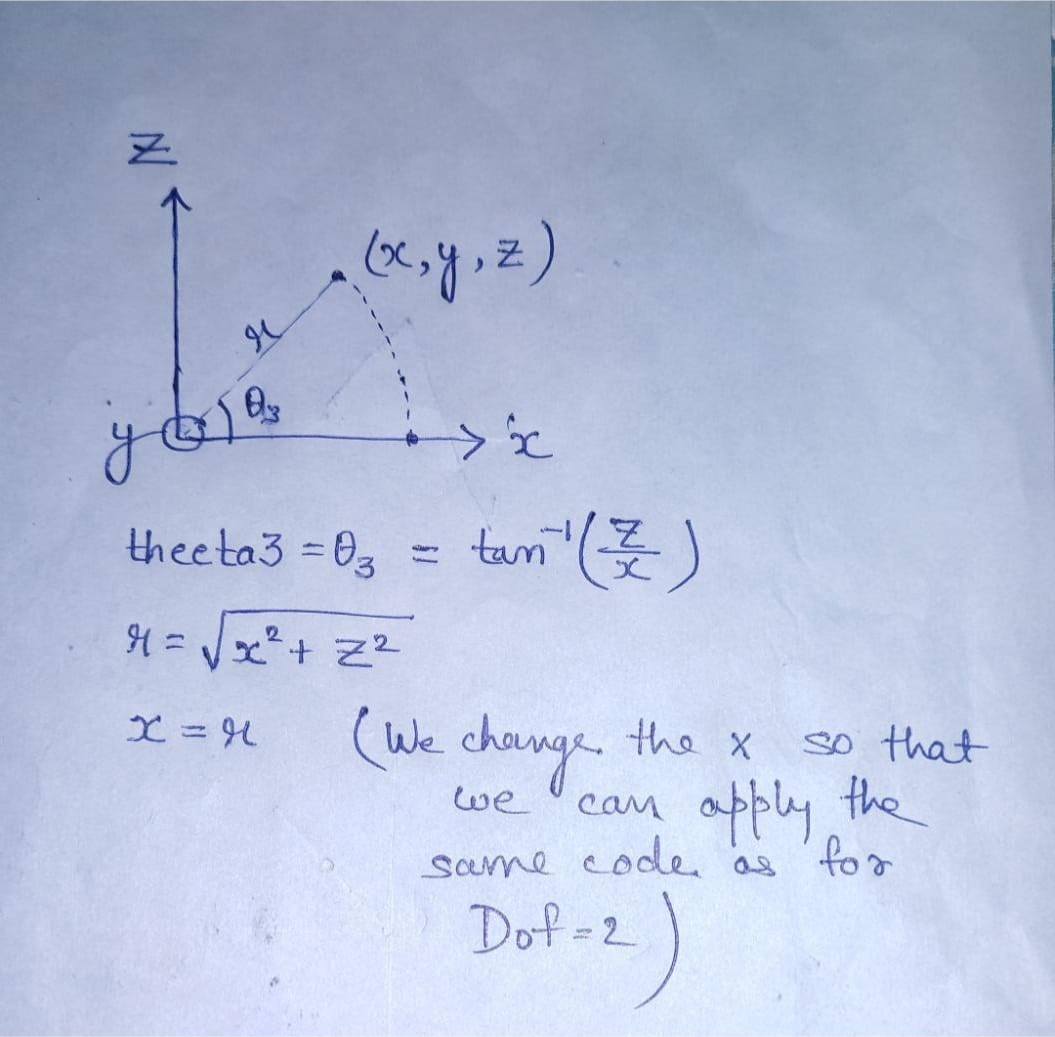 z
(x, y, z)
r
θ₃
y
x
theeta3 = θ₃ = tan⁻¹(z/x)
r = √x² + z²
x = r (We change the x so that
we can apply the
same code as for
Dof = 2)